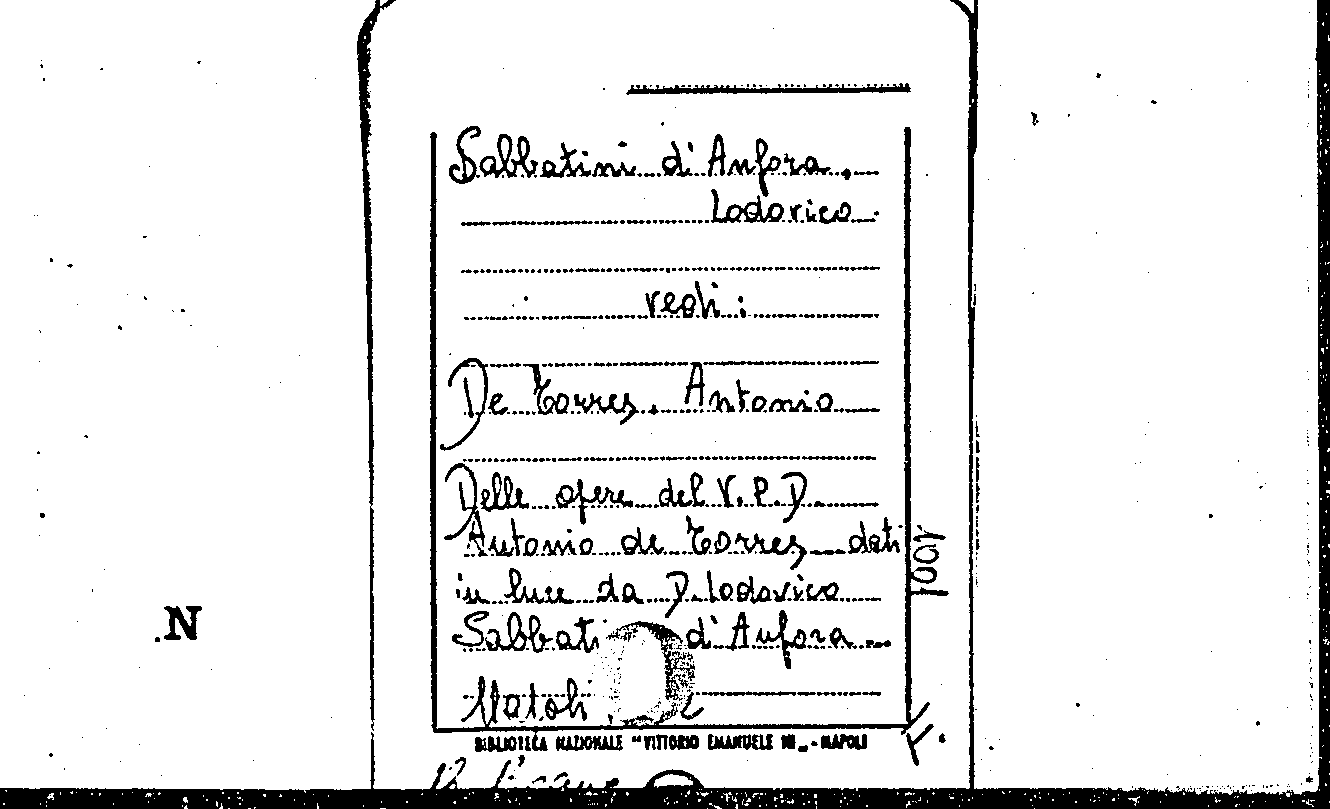 Sabbatini d'Anfora,
Lodovico
vedi:
De Torres, Antonio
Delle opere del V. P. D.
Antonio de Torres, dati
in luce da D. Lodovico
Sabbati d'Anfora
BIBLIOTECA NAZIONALE "VITTORIO EMANUELE III" - NAPOLI
.N